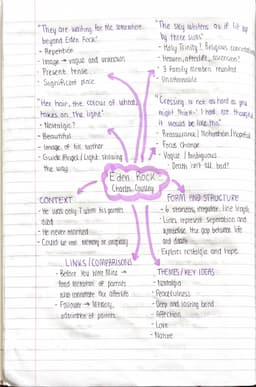 "They are waiting for me somewhere
beyond Eden Rock"
- Repetition
- Image → vague and unknown
- Present tense
- Significant place
"The sky whitens as if lit
by three suns"
- Holy Trinity / Religious connotations
- Heaven, afterlife,
- 3 family members reunited
"Her hair, the colour of wheat,
takes on the light"
- Nostalgic?
- Beautiful
- Image of his mother
- Guide / Angel / Light showing
the way
"Crossing is not as hard as you
might think" I had not thought
it would be like this"
- Reassurance / Motivation / Hopeful
- Focus change
- Vague / Ambiguous
- Death isn't all bad?
Eden Rock -
Charles Causley
CONTEXT
- He was only 7 when his parents
died
- He never married
- Could be real memory or imaginary
FORM AND STRUCTURE
- 6 stanzas, irregular line length
- Lines represent separation and
symbolise the gap between life
and death
Explores nostalgia and hope
LINKS / COMPARISONS
- Before You Were Mine →
fond of parents
who the afterlife
- Follower → Memory,
admiration of parents
THEMES / KEY IDEAS
- Nostalgia
- Peacefulness
- Deep and lasting bond
- Affection
- Love
- Nature